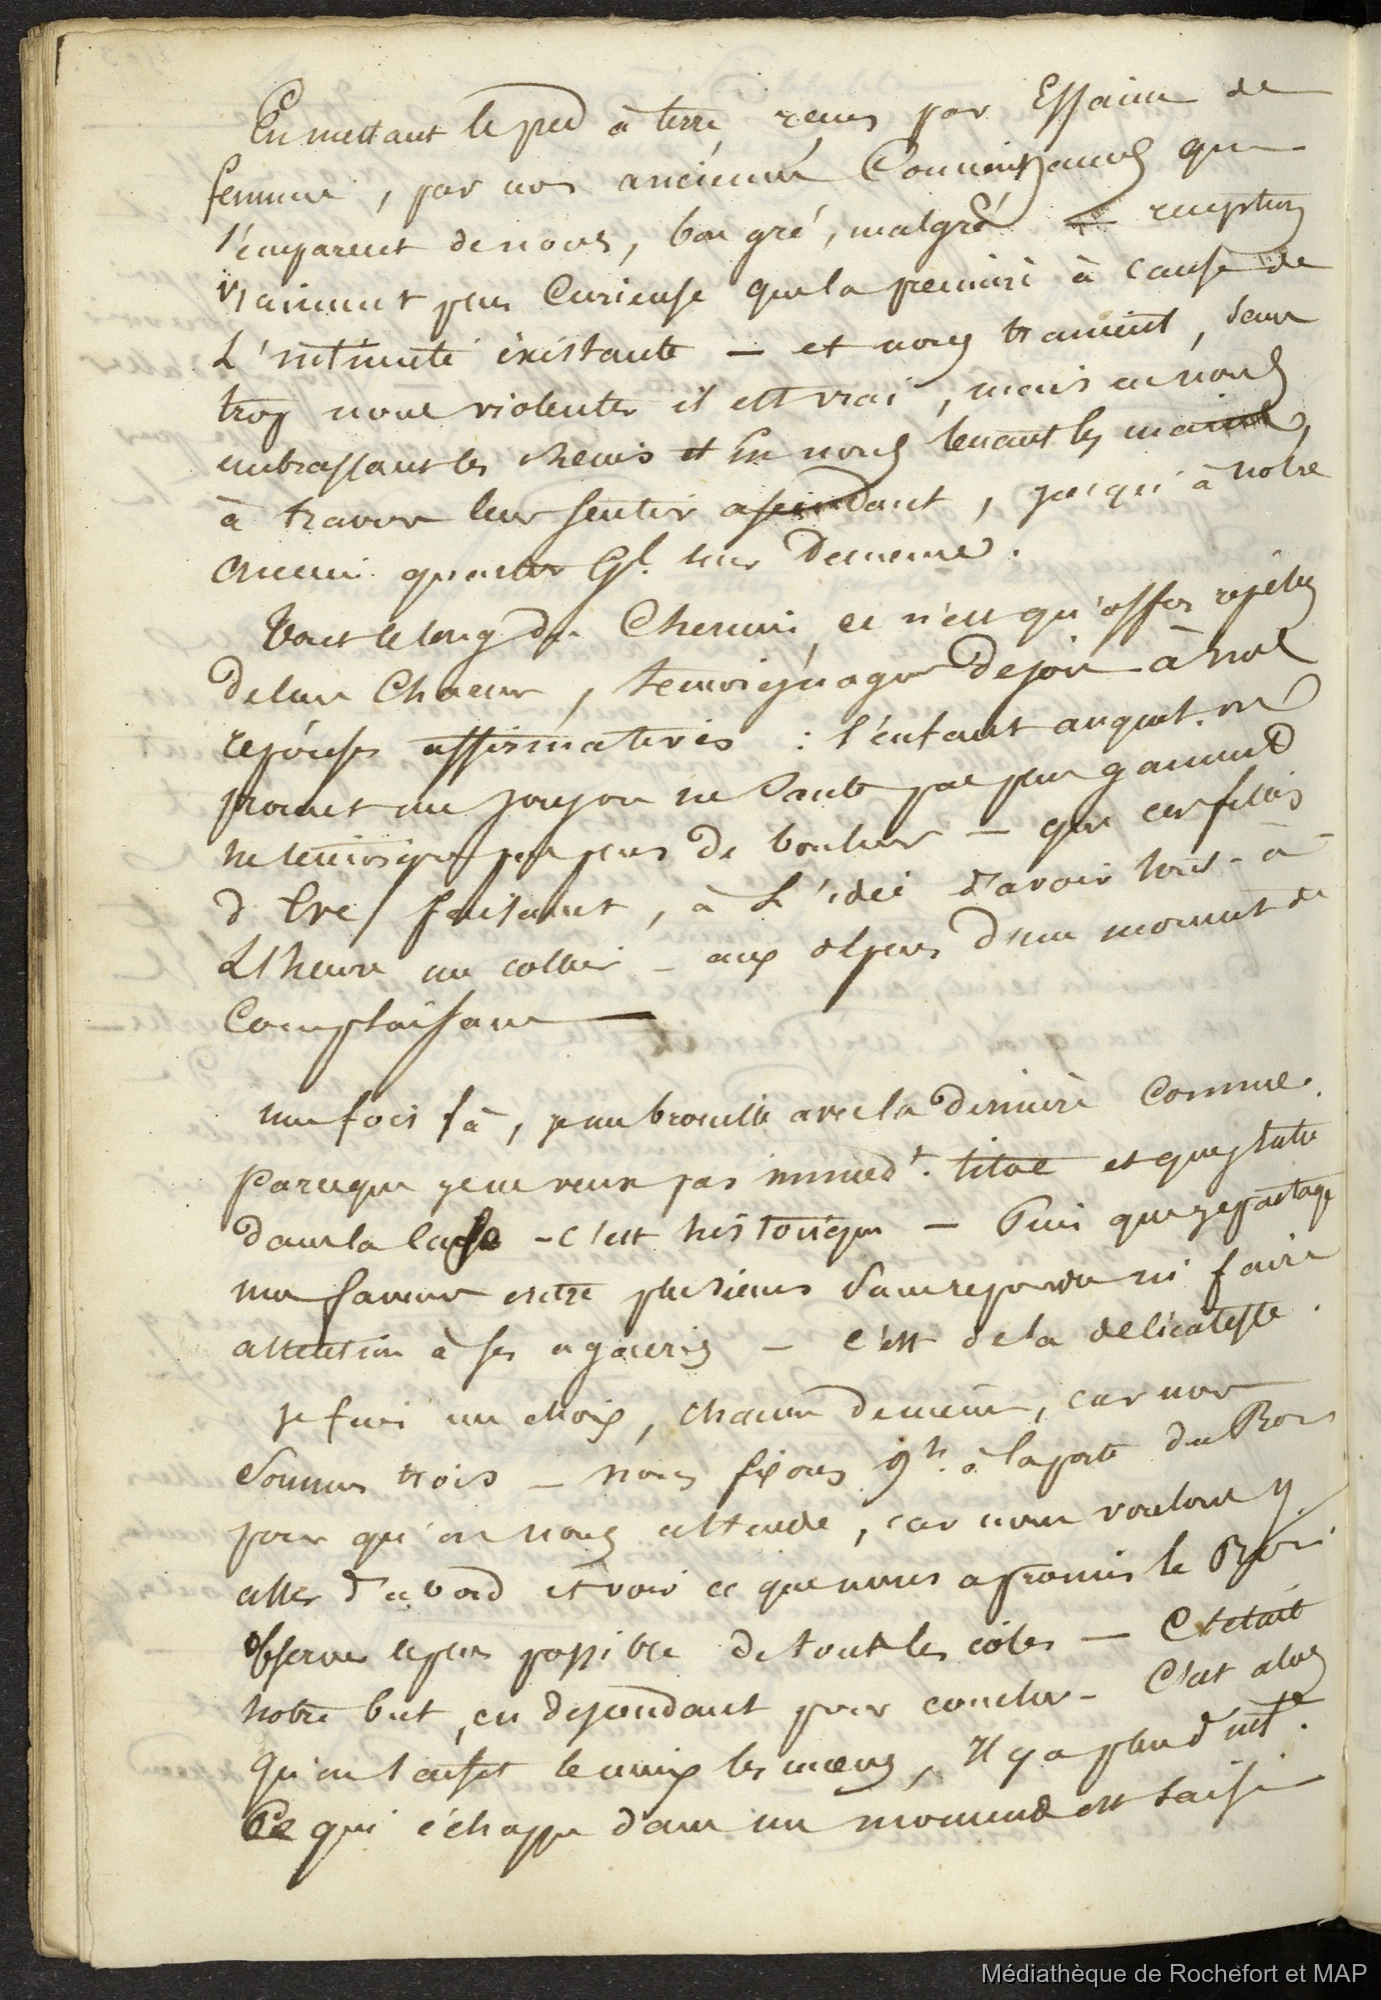 En mettant le pied à terre, reçus par Essaim de
femme, par nos anciennes Connoissances qui
s'emparent de nous, bon gré, malgré réception
vraiment plus Curieuse que la première à cause de
L'intimité éxistante — et nous trainent, sans
trop nous violenter il est vrai, mais en nous
embrassant les reins et En nous tenant les mains,
à travers leur sentier ascendant, jusqu'à notre
ancien quartier Gl. leur Demeure.
Tout le long du Chemin, ce n'est qu'offres répétés
de leur Chaeur, temoignages De joie à nos
réponses affirmatives : l'enfant auquel on
promet un joujou ne Saute pas plus gaiment
ne temoigne pas plus de bonheur — que ces filles
d'Eve / faisaient, à L'idée d'avoir tout-à-
L'heure un collier — aux dépens d'un moment de
Complaisance —
une fois là, je me brouille avec la Dernière Comme.
Parceque je ne veux pas immedt. titae et que statu
dans la case - c'est historique — Puis que je partage
ma faveur entre plusieurs Sans repondre ni faire
attention à ses agaceries — c'est de la délicatesse.
je fais un choix, chacun de même, car nous
Sommes trois — nous fixons 9h. à la porte du Roi
pour qu'on nous attende, car nous voulons y
aller d'abord et voir ce que nous a promis le Roi.
Observer le plus possible de tout les côtés — C'etait
notre but, en dépendant pour coucher - C'est alors
qu'on connait le mieux les mœurs, Il y a plus d'intt.
Ce qui échappe dans un moment est saisi
Médiathèque de Rochefort et MAP